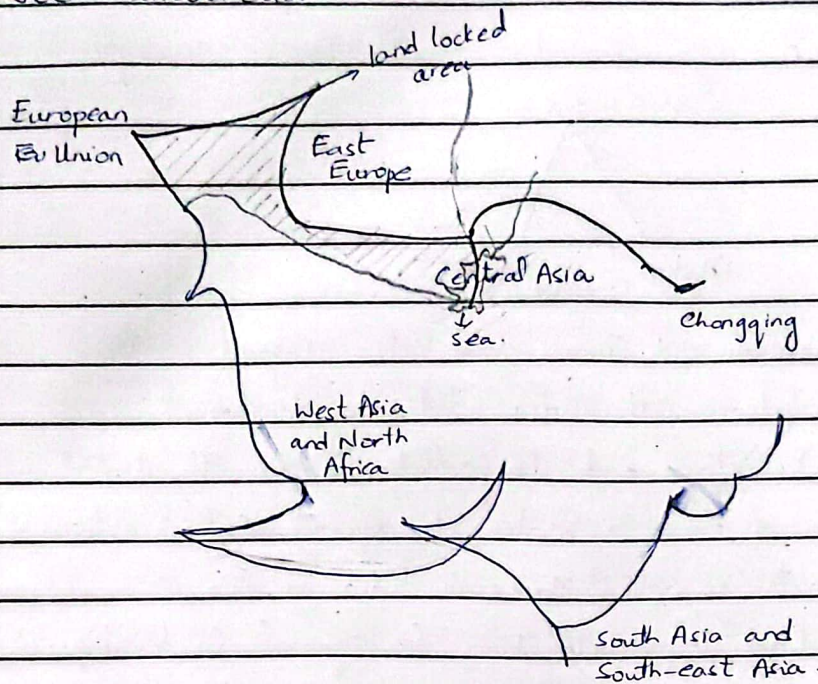 land locked
area
European
Eu Union
East
Europe
Central Asia
sea.
Chongqing
West Asia
and North
Africa
South Asia and
South-east Asia.